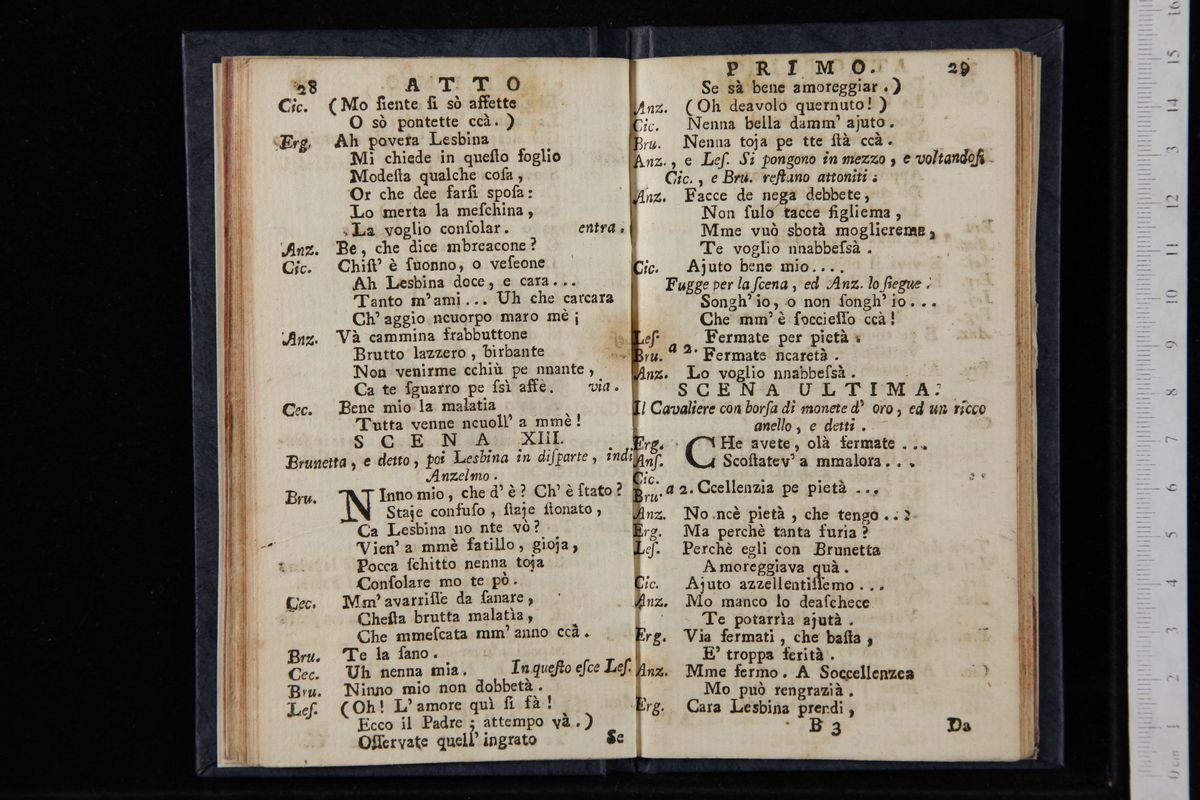 28 ATTO
Cic. (Mo ſiente ſi sò affette
O sò pontette ccà. )
Erg. Ah povera Lesbina
Mi chiede in queſto foglio
Modeſta qualche coſa,
Or che dee farſi spoſa:
Lo merta la meſchina,
La voglio conſolar. entra.
Anz. Be, che dice mbreacone?
Cic. Chiſt' è ſuonno, o veſeone
Ah Lesbina doce, e cara...
Tanto m'ami... Uh che carcara
Ch' aggio ncuorpo maro mè ¡
Anz. Và cammina frabbuttone
Brutto lazzero, birbante
Non venirme cchiù pe nnante,
Ca te ſguarro pe ſsì affè. via.
Cec. Bene mio la malatia
Tutta venne ncuoll' a mmè!
SCENA XIII.
Brunetta, e detto, poi Lesbina in diſparte, indi
Anzelmo.
Bru. NInno mio, che d' è? Ch' è ſtato?
Staje confuſo, ſtaje ſtonato,
Ca Lesbina no nte vò?
Vien' a mmè fatillo, gioja,
Pocca ſchitto nenna toja
Conſolare mo te pò.
Cec. Mm' avarriſſe da ſanare,
Cheſta brutta malatìa,
Che mmeſcata mm' anno ccà.
Bru. Te la ſano.
Cec. Uh nenna mia. In queſto eſce Leſ.
Bru. Ninno mio non dobbetà.
Leſ. (Oh! L' amore quì ſi fà!
Ecco il Padre; attempo và.)
Oſſervate quell' ingrato
Se
PRIMO. 29
Se sà bene amoreggiar.)
Anz. (Oh deavolo quernuto!)
Cic. Nenna bella damm' ajuto.
Bru. Nenna toja pe tte ſtà ccà.
Anz., e Leſ. Si pongono in mezzo, e voltandoſi
Cic., e Bru. reſtano attoniti:
Anz. Facce de nega debbete,
Non ſulo tacce figliema,
Mme vuò sbotà moglierema,
Te voglio nnabbeſsà.
Cic. Ajuto bene mio....
Fugge per la ſcena, ed Anz. lo ſiegue.
Songh' io, o non ſongh' io...
Che mm' è ſoccieſſo ccà!
Leſ. Fermate per pietà.
Bru. a 2. Fermate ncaretà.
Anz. Lo voglio nnabbeſsà.
SCENA ULTIMA.
Il Cavaliere con borſa di monete d' oro, ed un ricco
anello, e detti.
Erg. CHe avete, olà fermate...
Anſ. Scoſtatev' a mmalora...
Cic.
Bru. a 2. Ccellenzia pe pietà...
Anz. No ncè pietà, che tengo...
Erg. Ma perchè tanta furia?
Leſ. Perchè egli con Brunetta
Amoreggiava quà.
Cic. Ajuto azzellentiſſemo...
Anz. Mo manco lo deaſchece
Te potarrìa ajutà.
Erg. Via fermati, che baſta,
E' troppa ferità.
Anz. Mme fermo. A Soccellenzea
Mo può rengrazià.
Erg. Cara Lesbina prendi,
B 3 Da